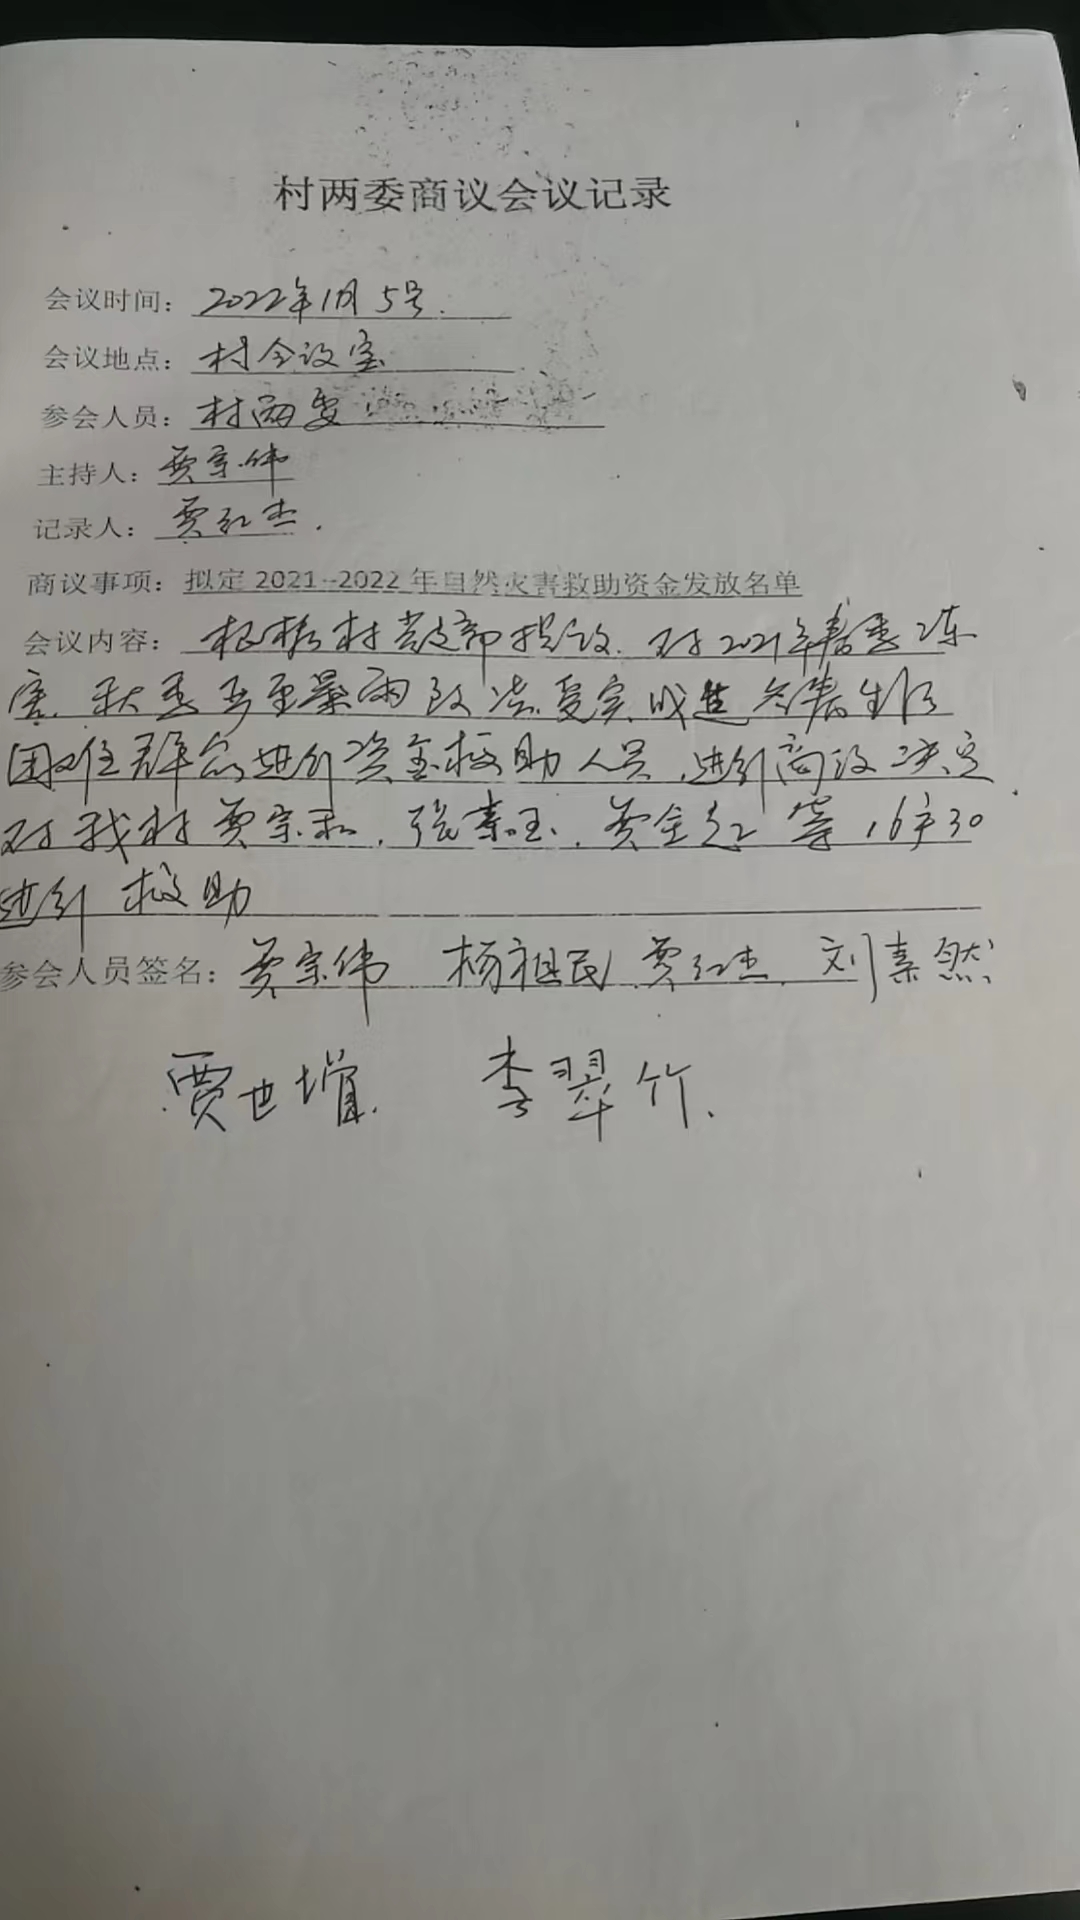 村两委商议会议记录
会议时间：2022年1月5号.
会议地点：村会议室
参会人员：村两委
主持人：贾宗伟
记录人：贾红杰.
商议事项：拟定2021--2022年自然灾害救助资金发放名单
会议内容：根据村党支部提议.对2021年春季冻
害.秋季多至暴雨致 受灾 造 生活
困难群众进行资金救助人员,进行商议决定
对我村贾宗和,张素玉,贾全红等16户30
进行救助
参会人员签名：贾宗伟 杨祖民 贾红杰 刘素然
贾世增. 李翠竹.